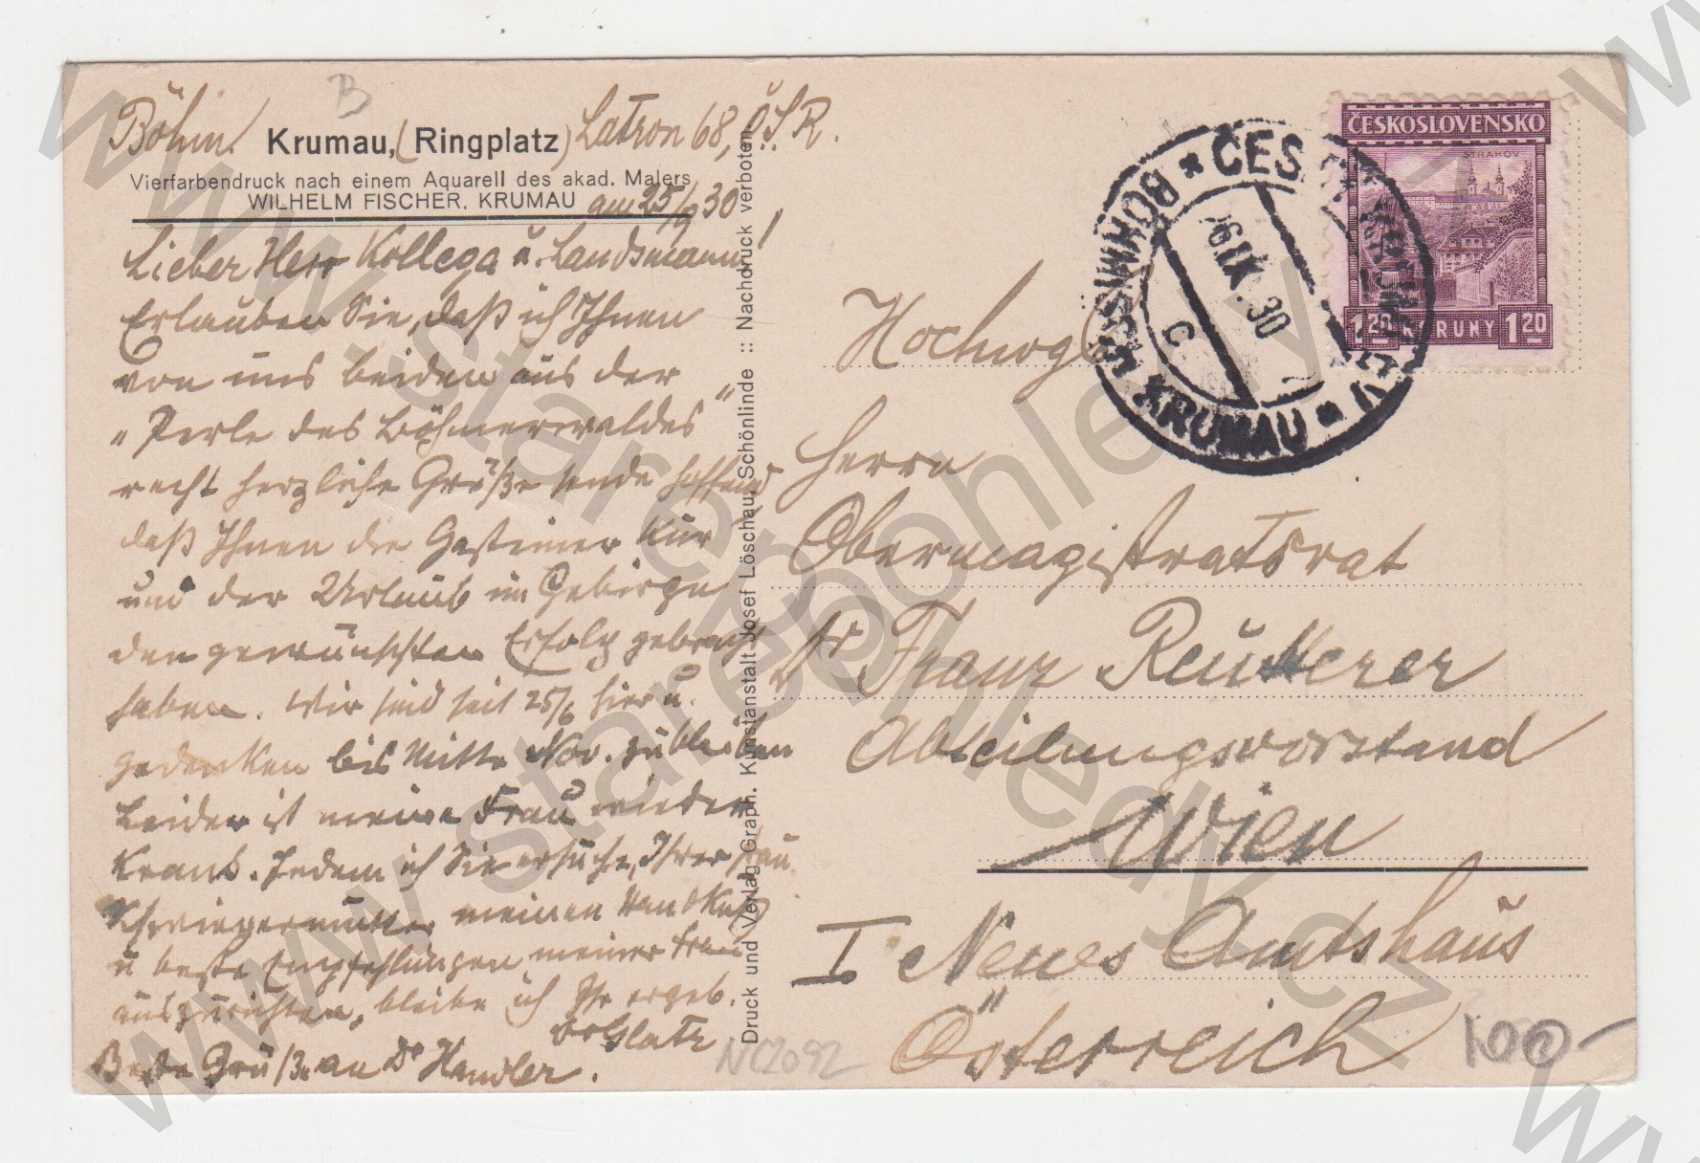 B
Böhm. Krumau, (Ringplatz) Latron 68, Č.S.R.
Vierfarbendruck nach einem Aquarell des akad. Malers
WILHELM FISCHER, KRUMAU am 25/9 30
Lieber Herr Kollega u. Landsmann!
Erlauben Sie, daß ich Ihnen
von uns beiden aus der
„Perle des Böhmerwaldes"
recht herzliche Grüße sende hoffend
daß Ihnen die Gasteiner Kur
und der Urlaub im Gebirge
den gewünschten Erfolg gebracht
haben. Wir sind seit 25/6 hier u.
gedenken bis Mitte Nov. zu bleiben
Leider ist meine Frau wieder
krank. Indem ich Sie ersuche, Ihrer Frau
Schwiegermutter meinen Handkuß
u beste Empfehlungen meiner Frau
auszurichten, bleibe ich Ihr ergeb.
Beste Grüße an Dr Handler.
Druck und Verlag Graph. Kunstanstalt Josef Löschau, Schönlinde :: Nachdruck verboten
ČESKOSLOVENSKO
STRAHOV
1 20 KORUNY 1 20
ČESKÝ KRUMLOV * BÖHMISCH KRUMAU *
26.IX.30
C
Hochwgb
Herrn
Obermagistratsrat
Dr Franz Reutterer
Abteilungsvorstand
Wien
I Neues Amtshaus
Österreich
100-
www.starepohledy.cz
www.starepohledy.cz